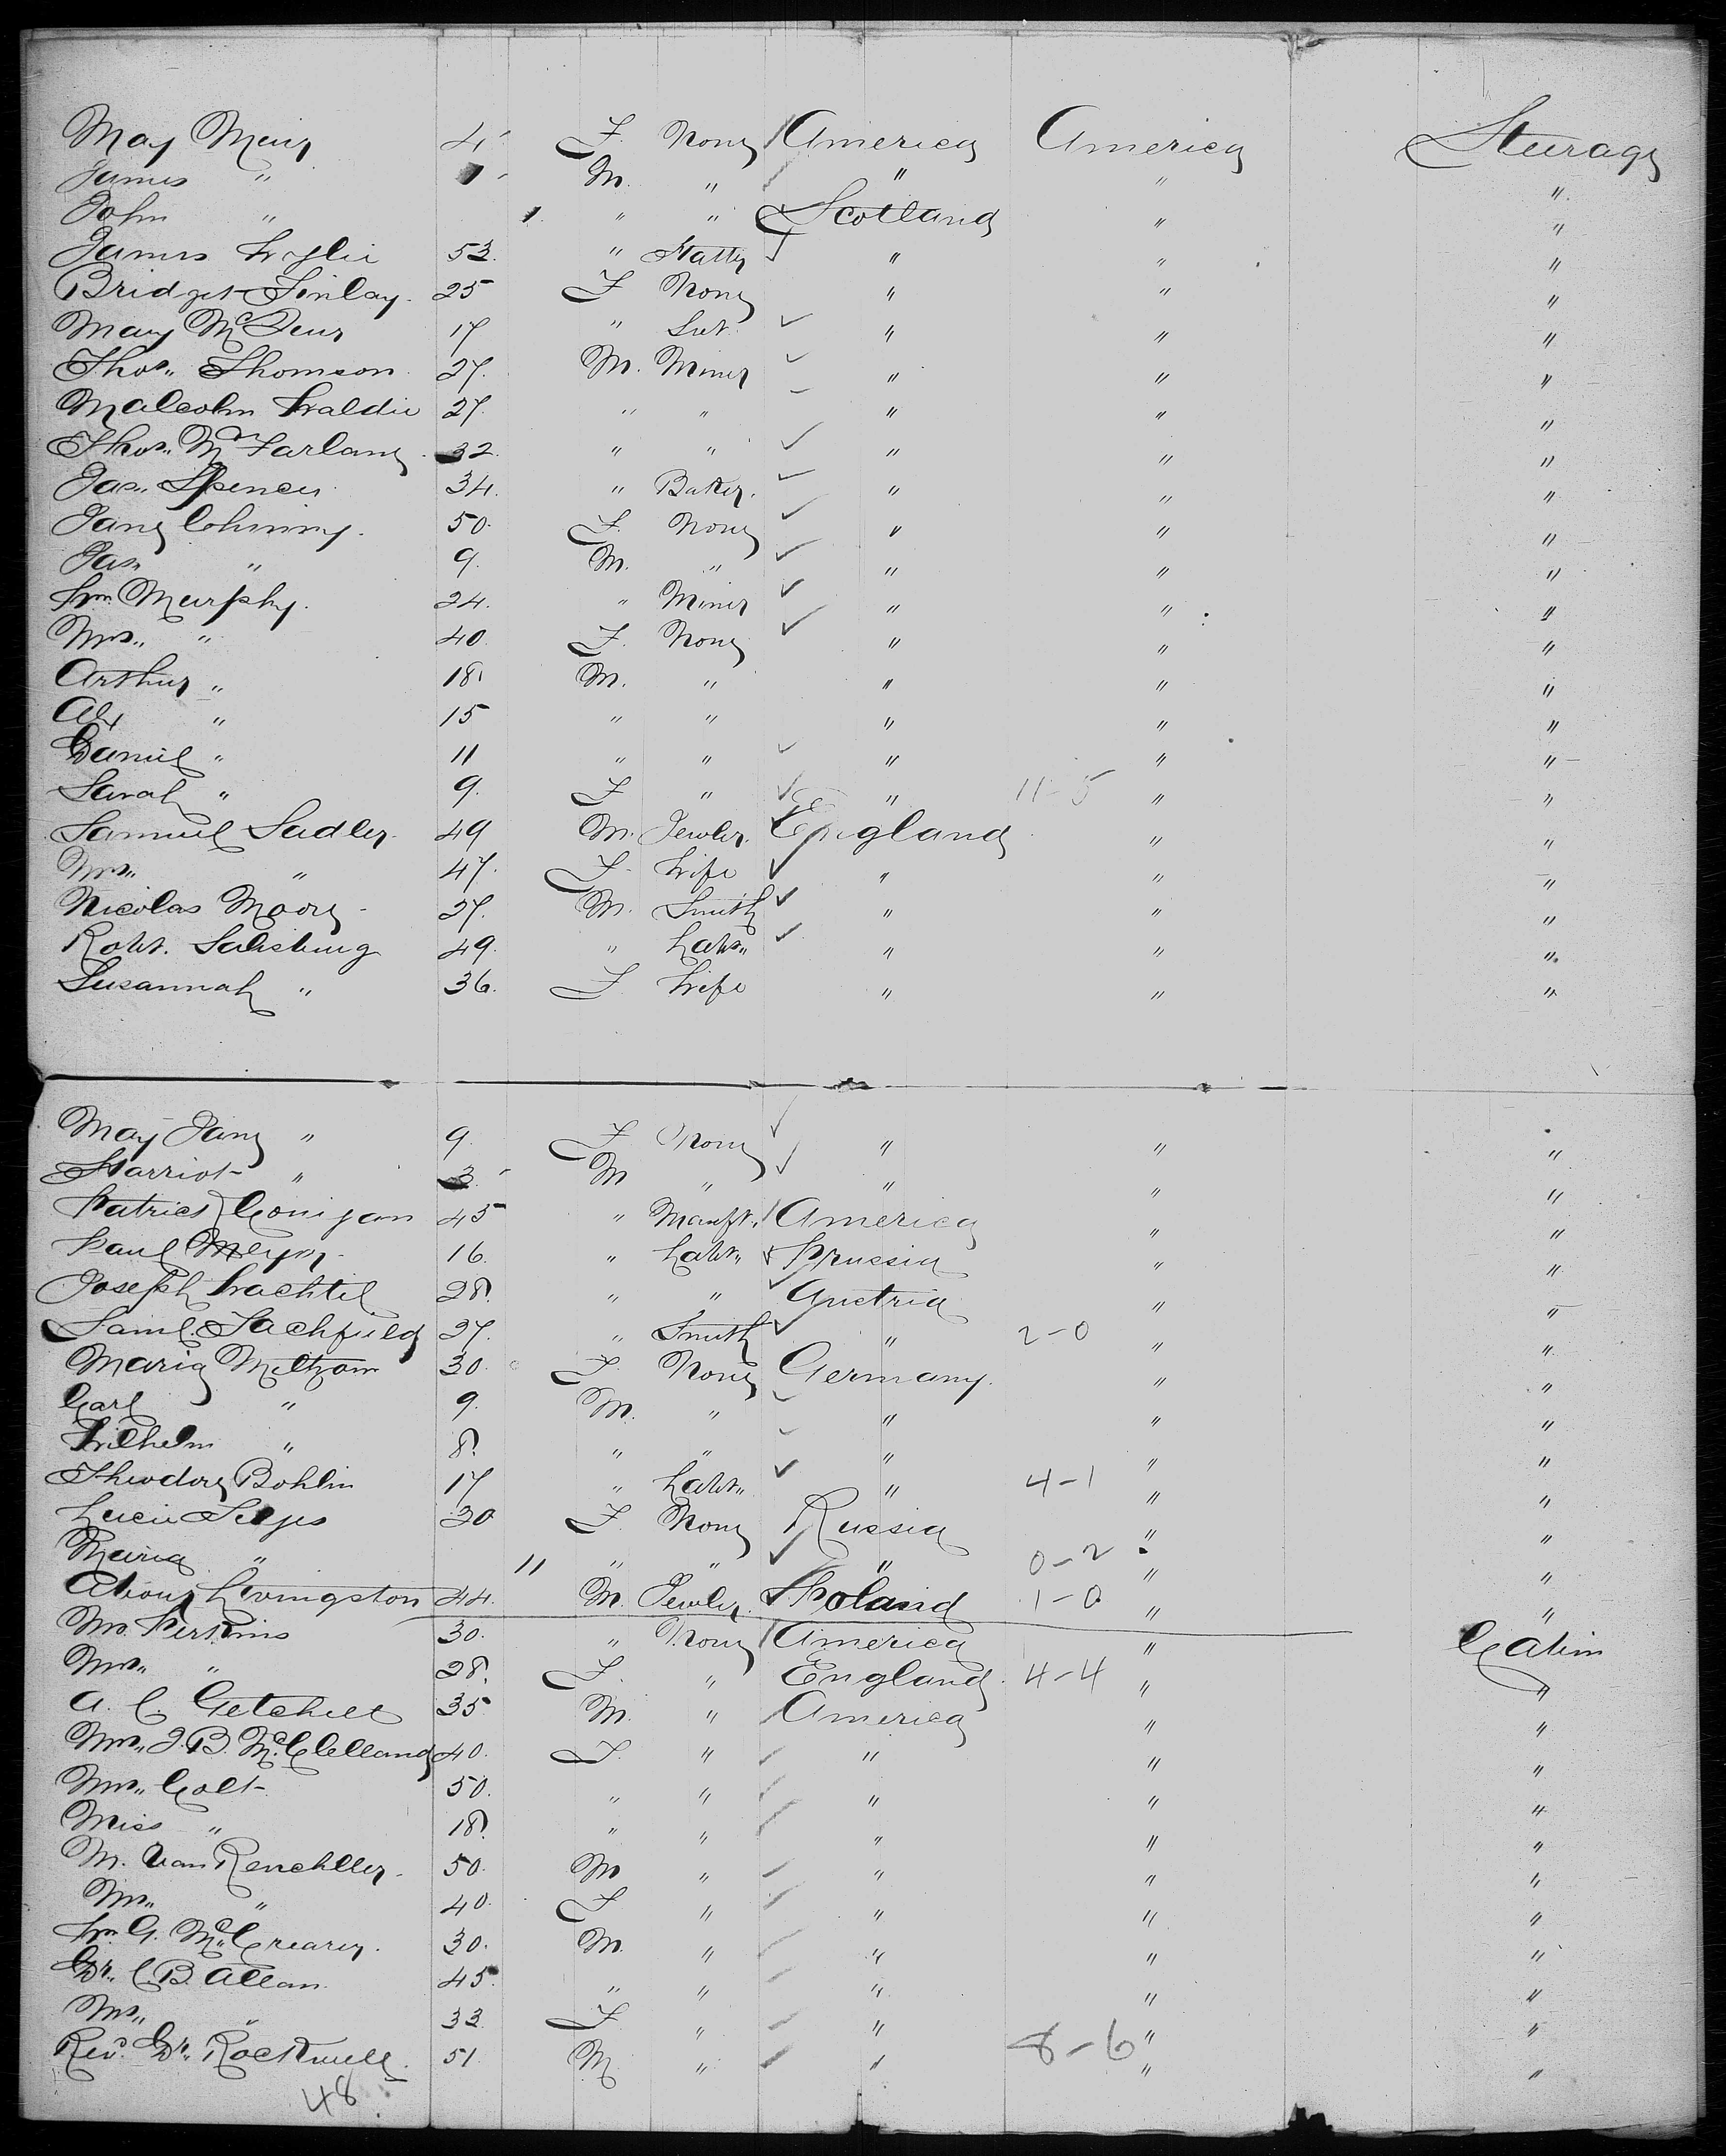 May Muir 4 F. None America America Steerage
James " 1 M. " " " "
John " 1 " " Scotland " "
James Wylie 53. " Hatter " " "
Bridget Finlay. 25 F None " " "
Mary 17 " Svt. " " "
Thos. Thomson 27. M. Miner " " "
Malcolm Waldie 27. " " " " "
Thos. McFarlane 32. " " " " "
Jas. Spencer 34. " Baker. " " "
Jane 50. F. None " " "
Jas. " 9. M. " " " "
Wm. Murphy. 24. " Miner " " "
Mrs. " 40. F. None " " "
Arthur " 18. M. " " " "
Alex " 15 " " " " "
Daniel " 11 " " " " "
Sarah " 9. F " " 11-5 " "
Samuel Sadler. 49 M. Jewler. England " "
Mrs. " 47. F. Wife " " "
Nicolas Moore 27. M. Smith " " "
Robt. Salisbury 49. " Labr. " " "
Susannah " 36. F Wife " " "
May Jane " 9. F None " " "
Harriot " 3. M " " " "
Patrick 45 " Manft. America " "
Paul Meyer 16. " Labr. Prussia " "
Joseph Wachtel 28. " " Austria " "
Saml. Sachfield 27. " Smith " 2-0 " "
Maria 30. F. None Germany. " "
Carl " 9. M. " " " "
Wilhelm " 8. " " " " "
Theodore Bohlin 17 " Labr. " 4-1 " "
Lucie 30 F. None Russia " "
Maria " 11 " " " 0-2 " "
Livingston 44. M. Jewler. Poland 1-0 " "
Mr. Perkins 30. " None America " Cabin
Mrs. " 28. F. " England. 4-4 " "
A. C. Getchell 35 M. " America " "
Mrs. J. B. McClelland 40. F. " " " "
Mrs. Colt 50. " " " " "
Miss " 18. " " " " "
M. Van Renchller. 50. M " " " "
Mrs. " 40. F " " " "
Wm. G. McCreary. 30. M. " " " "
Dr. C. B. Allan 45. " " " " "
Mrs. " 33 F " " " "
Revd. Dr. Rockwell. 51. M " " 8-6 " "
48